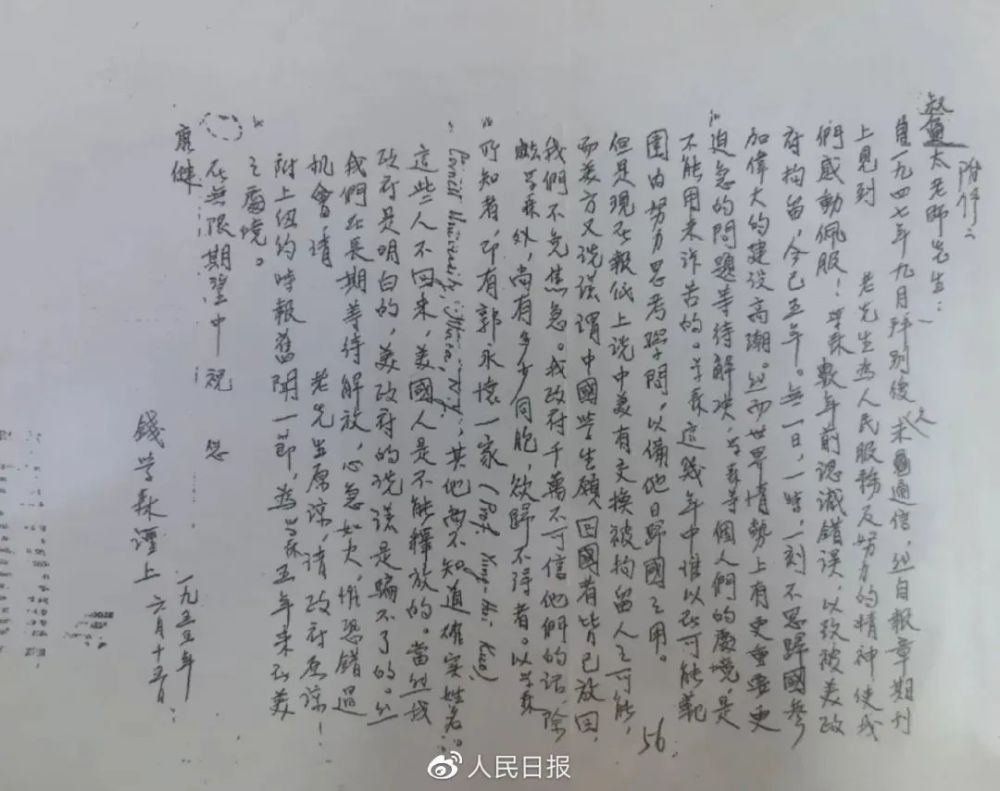 附件二
叔通太老師先生：
自一九四七年九月拜別後久未通信，然自報章期刊
上見到老先生為人民服務及努力的精神使我
們感動佩服！学森數年前認識錯誤，以致被美政
府拘留，今已五年。無一日，一時，一刻不思歸國參
加偉大的建設高潮。然而世界情勢上有更重要更
迫急的問題等待解决，学森等個人們的處境，是
不能用来诉苦的。学森這幾年中惟以在可能範
圍内努力思考學問，以備他日歸國之用。
56
但是現在報紙上說中美有交換被拘留人之可能，
而美方又说谎謂中國学生願回國者皆已放回，
我們不免焦急。我政府千萬不可信他們的话，除
学森外，尚有多少同胞，欲歸不得者。以学森
所知者，即有郭永懷一家（Prof. Yung-Huai Kuo，
Cornell University，），其他尚不知道確实姓名。
這些人不回来，美國人是不能釋放的。當然我
政府是明白的，美政府的说谎是騙不了的。然
我們在長期等待解放，心急如火，惟恐錯過
機会，請老先生原谅，请政府原谅！
附上纽约時報舊聞一節，為学森五年来在美
之處境。
在無限期望中祝您
康健
錢学森謹上
一九五五年
六月十五日
人民日报